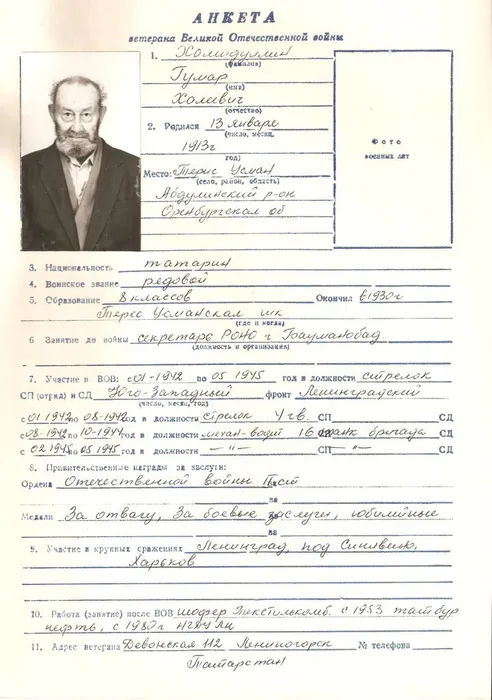 АНКЕТА
ветерана Великой Отечественной войны
1. Халиуллин
(фамилия)
Гумар
(имя)
Халевич
(отчество)
2. Родился 13 января
(число, месяц,
1913г
год)
Место: Терис Усман
(село, район, область)
Абдулинский р-он
Оренбургская об
Фото
военных лет
3. Национальность татарин
4. Воинское звание редовой
5. Образование 8 классов Окончил в 1930г
Терес Усманская шк
(где и когда)
6 Занятие до войны секретарь РОНО г
(должность и организация)
7. Участие в ВОВ: с 01-1942 по 05 1945 год в должности стрелок
СП (отряд) и СД Юго-Западный фронт Ленинградский
(число, месяц, год)
с 01 1942 по 08-1942 год в должности стрелок 4 гв. СП СД
с 08-1942 по 10-1944 год в должности механ-водит 16 танк бригада СД
с 02 1945 по 05 1945 год в должности —"— СП —"— СД
8. Правительственные награды за заслуги:
Ордена Отечественной войны II ст
за
Медали За отвагу, За боевые заслуги, юбилейные
за
9. Участие в крупных сражениях Ленинград, под
Харьков
10. Работа (занятие) после ВОВ шофер с 1953 тат бур
нефть, с 1980г НГДУ Лн
11. Адрес ветерана Девонская 112 Лениногорск № телефона
Татарстан